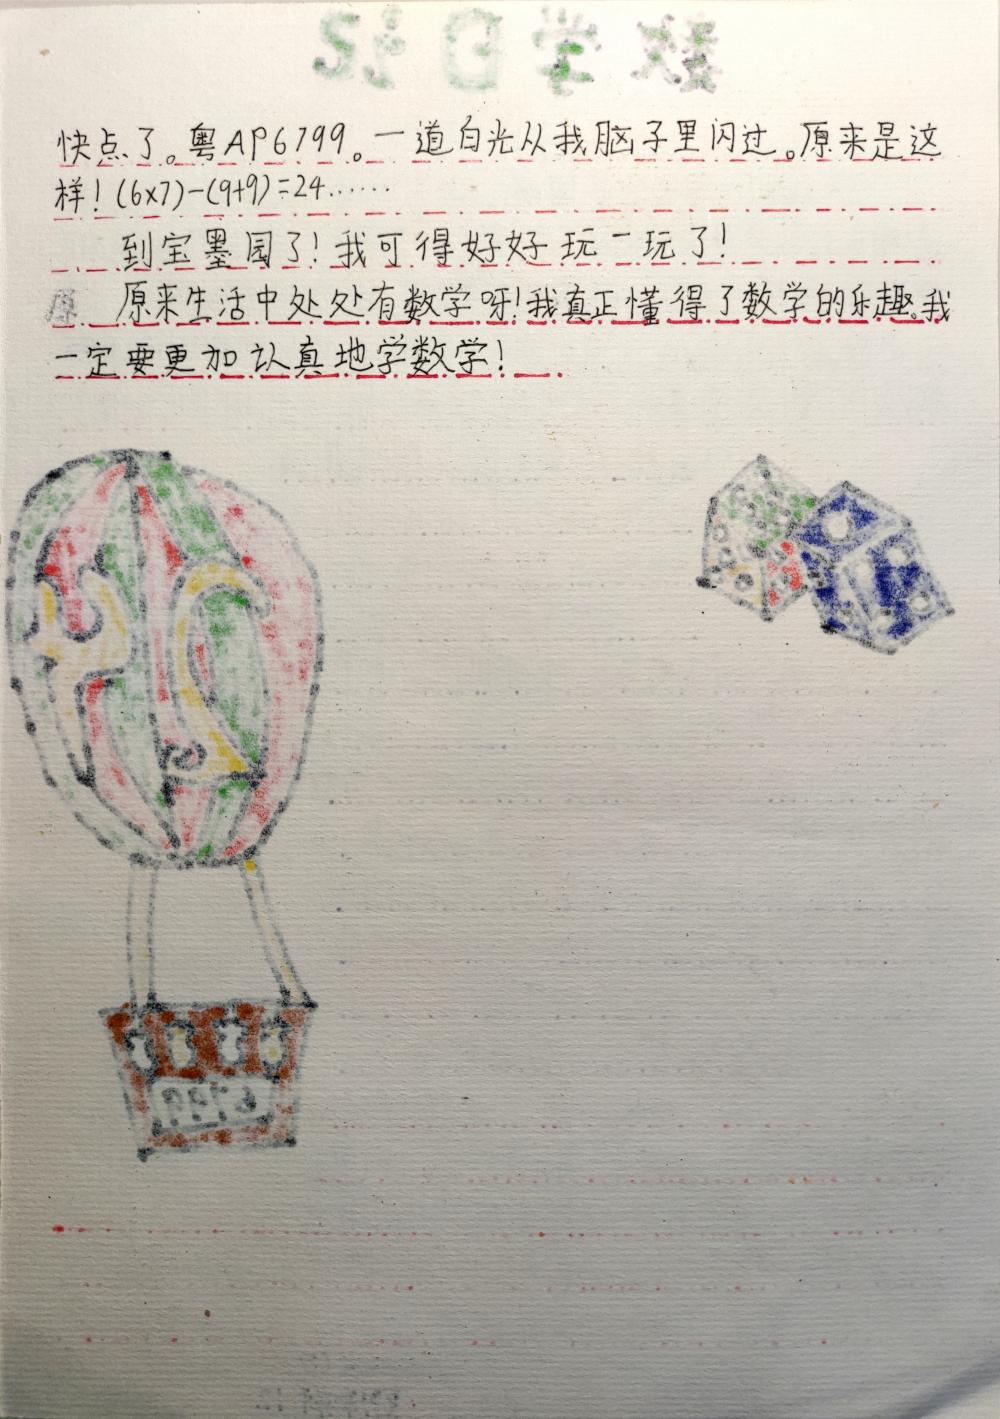 数学日记
快点了。粤AP6799。一道白光从我脑子里闪过。原来是这
样！(6×7)-(9+9)=24……
到宝墨园了！我可得好好玩一玩了！
原 原来生活中处处有数学呀！我真正懂得了数学的乐趣。我
一定要更加认真地学数学！
6799